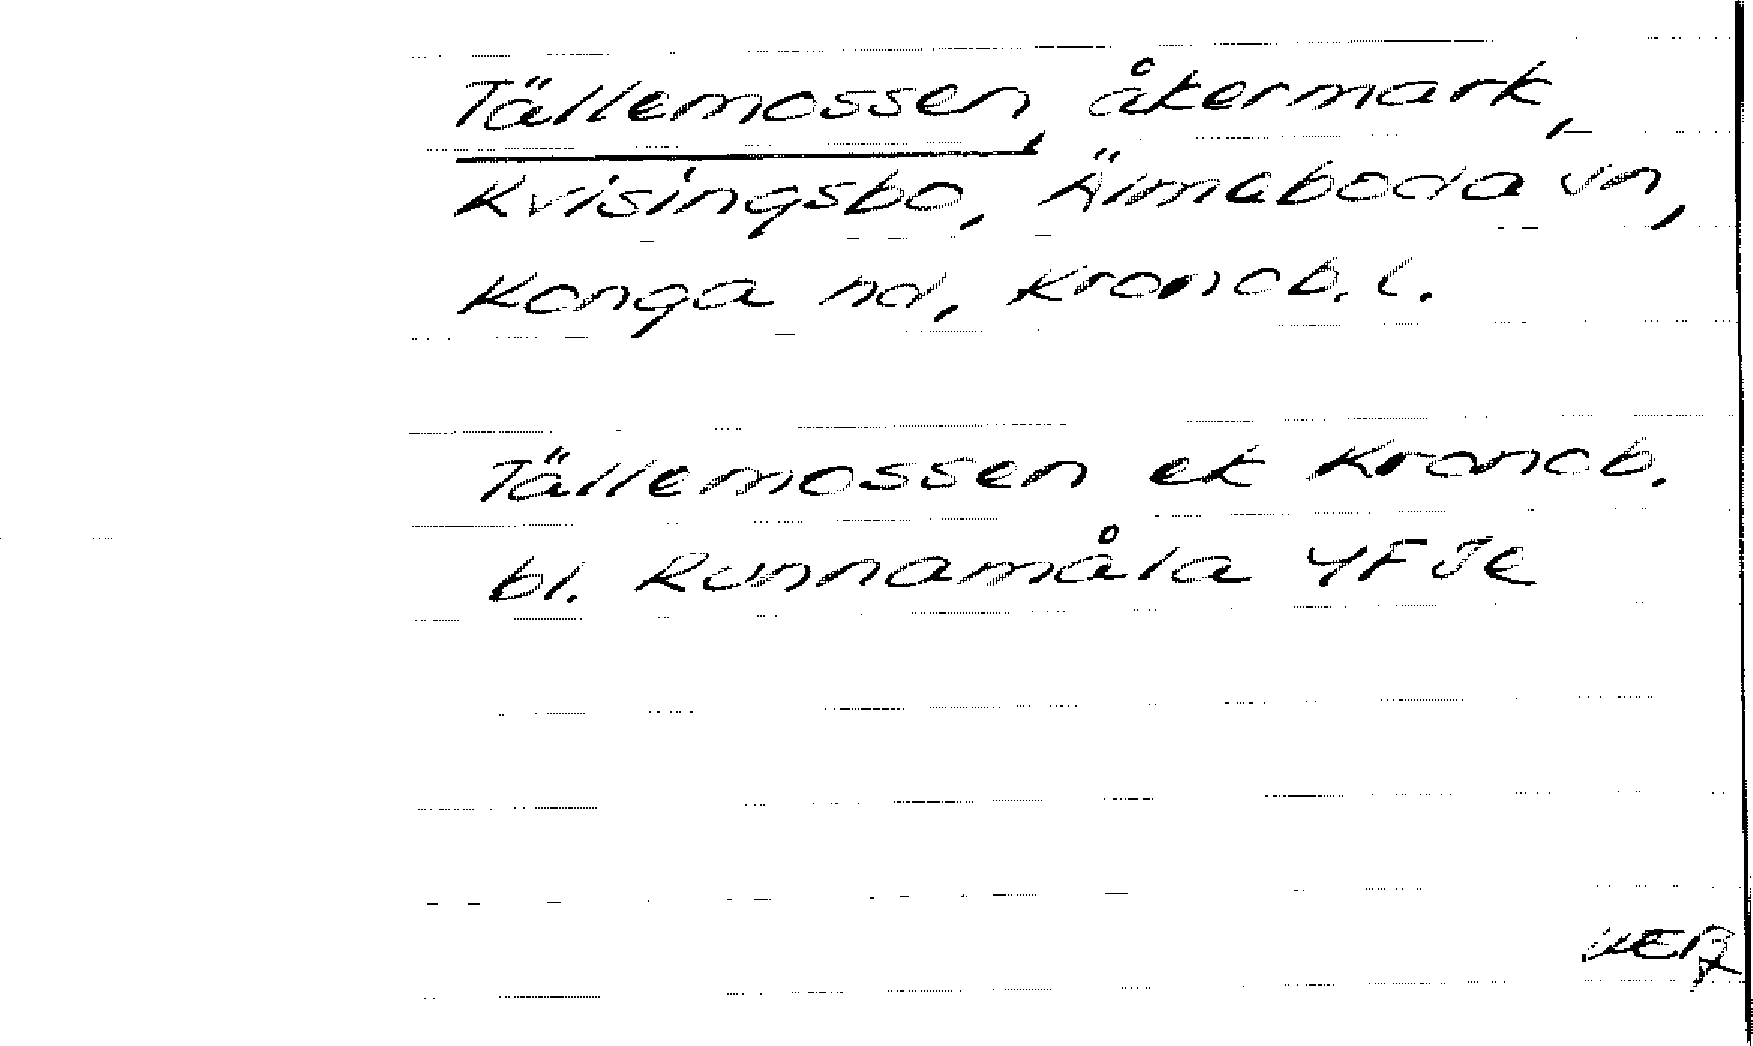 Tällemossen, åkermark,
Kvisingsbo, Älmeboda sn,
Konga hd, Kronob. l.
Tällemossen ek Kronob.
bl. Runnamåla 4F 3e